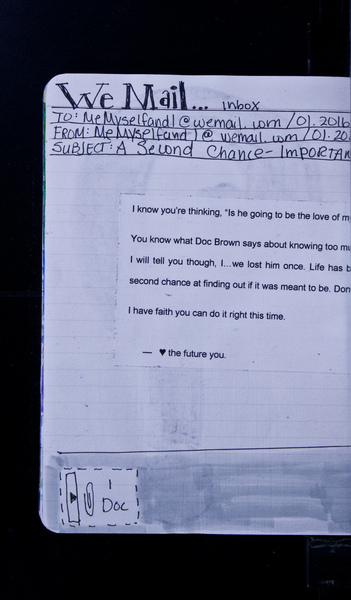 We Mail... inbox
TO: MeMyselfandI@wemail.com/01.2016
FROM: MeMyselfandI@wemail.com/01.20
SUBJECT: A Second Chance - IMPORTAN
I know you're thinking, "Is he going to be the love of m
You know what Doc Brown says about knowing too mu
I will tell you though, I...we lost him once. Life has b
second chance at finding out if it was meant to be. Don
I have faith you can do it right this time.
— ♥ the future you.
1
Doc